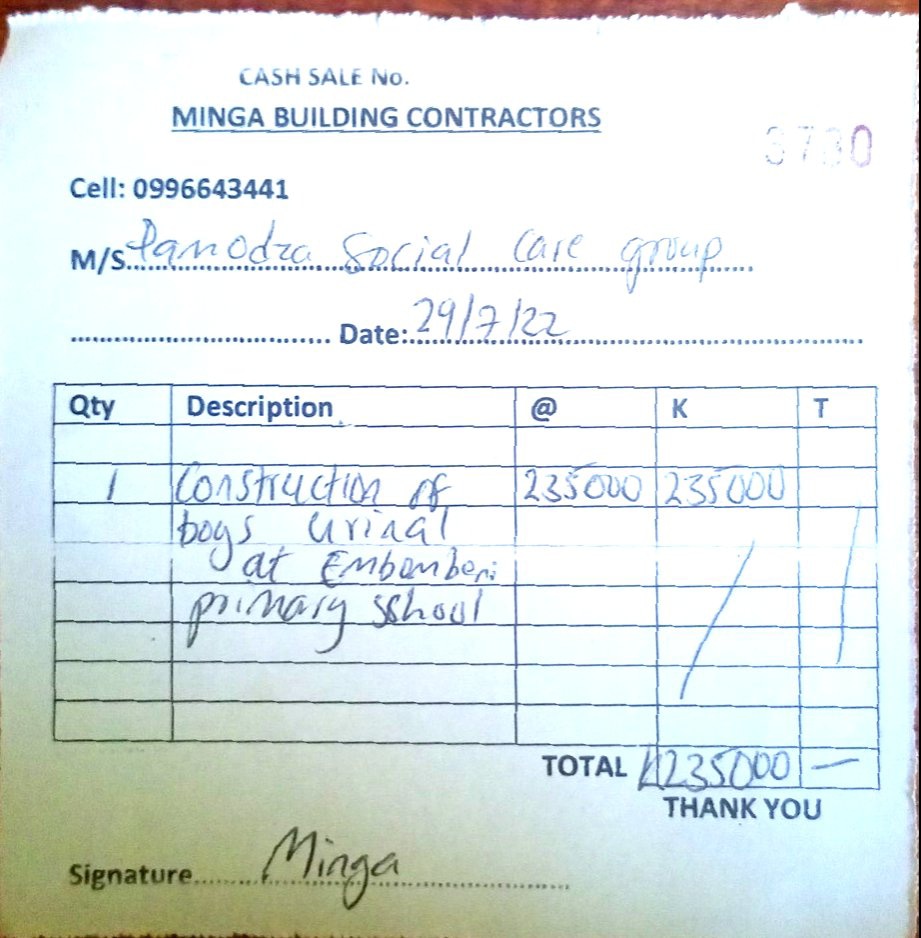 CASH SALE No.
MINGA BUILDING CONTRACTORS
3730
Cell: 0996643441
M/S Panodza Social Care group
Date: 29/7/22
Qty Description @ K T
1 Construction of 235000 235000
boys urinal
at Embombeni
primary sshool
TOTAL K235000 —
THANK YOU
Signature Minga